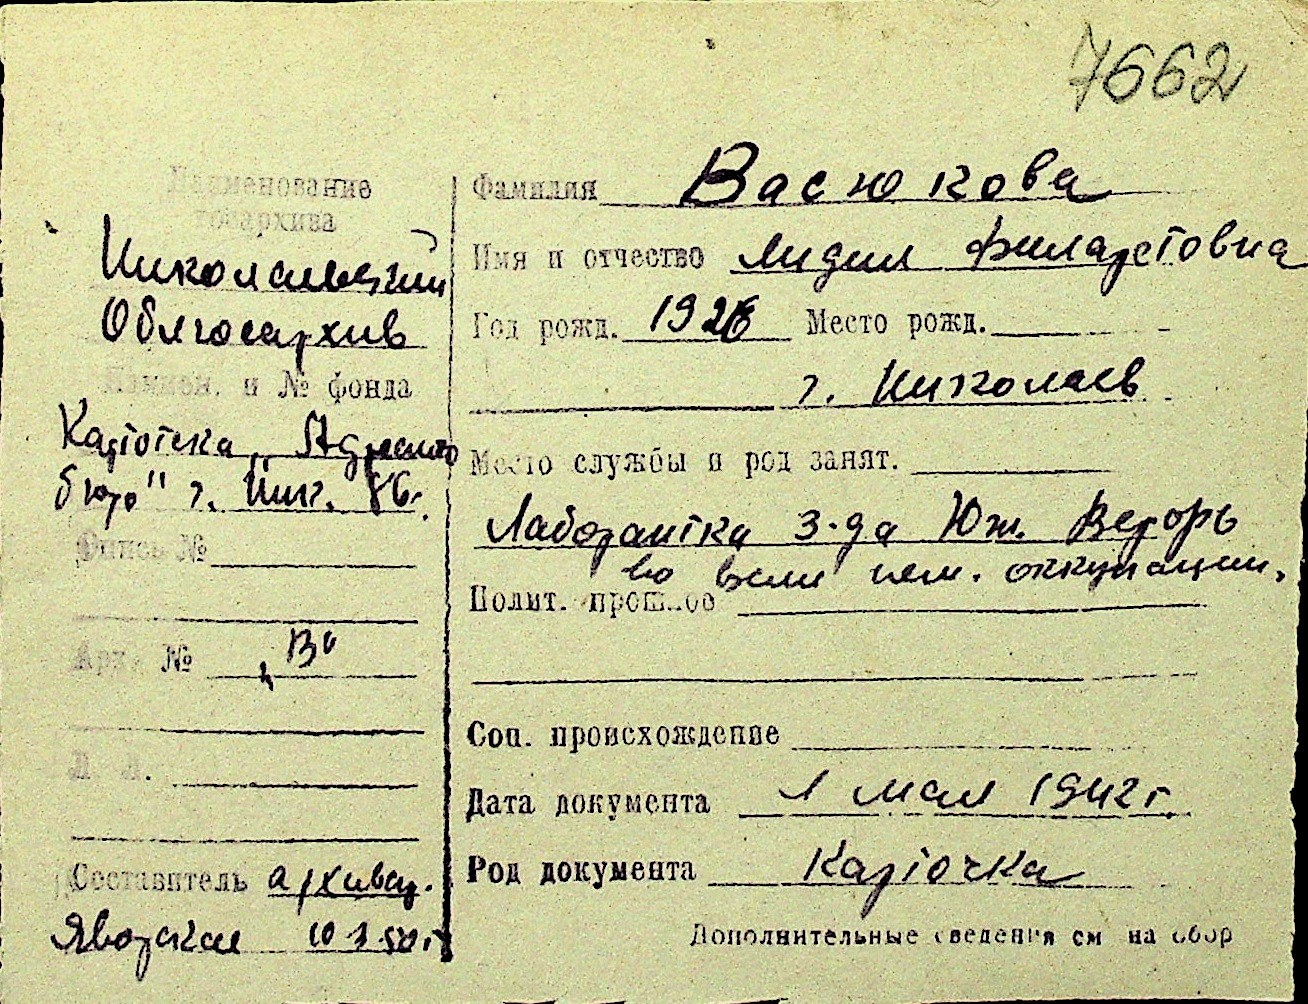 7662
Наименование
госархива
Николаевский
Облгосархив
Наимен. и № фонда
Картотека „Адресного
бюро" г. Ник.
Опись №
Арх. № „В"
Л. Л.
Составитель архивар.
Яворская 10 3 50 г.
Фамилия Васюкова
Имя и отчество Лидия Филаретовна
Год рожд. 1926 Место рожд.
г. Николаев
Место службы и род занят.
Лаборантка з-да Юж. Верфь
во время нем. оккупации.
Полит. прошлое
Соц. происхождение
Дата документа 1 мая 1942 г.
Род документа Карточка
Дополнительные сведения см на обор